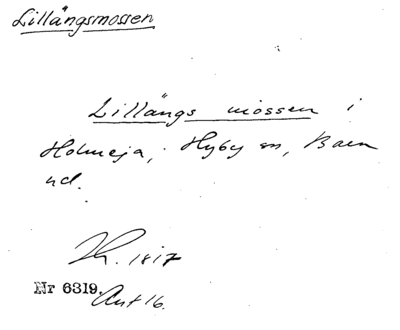 Lillängsmossen
Lillängs mossen i
Holmeja, Hyby sn, Bara
hd.
Th. 1817
Nr 6319.
Ant 16.